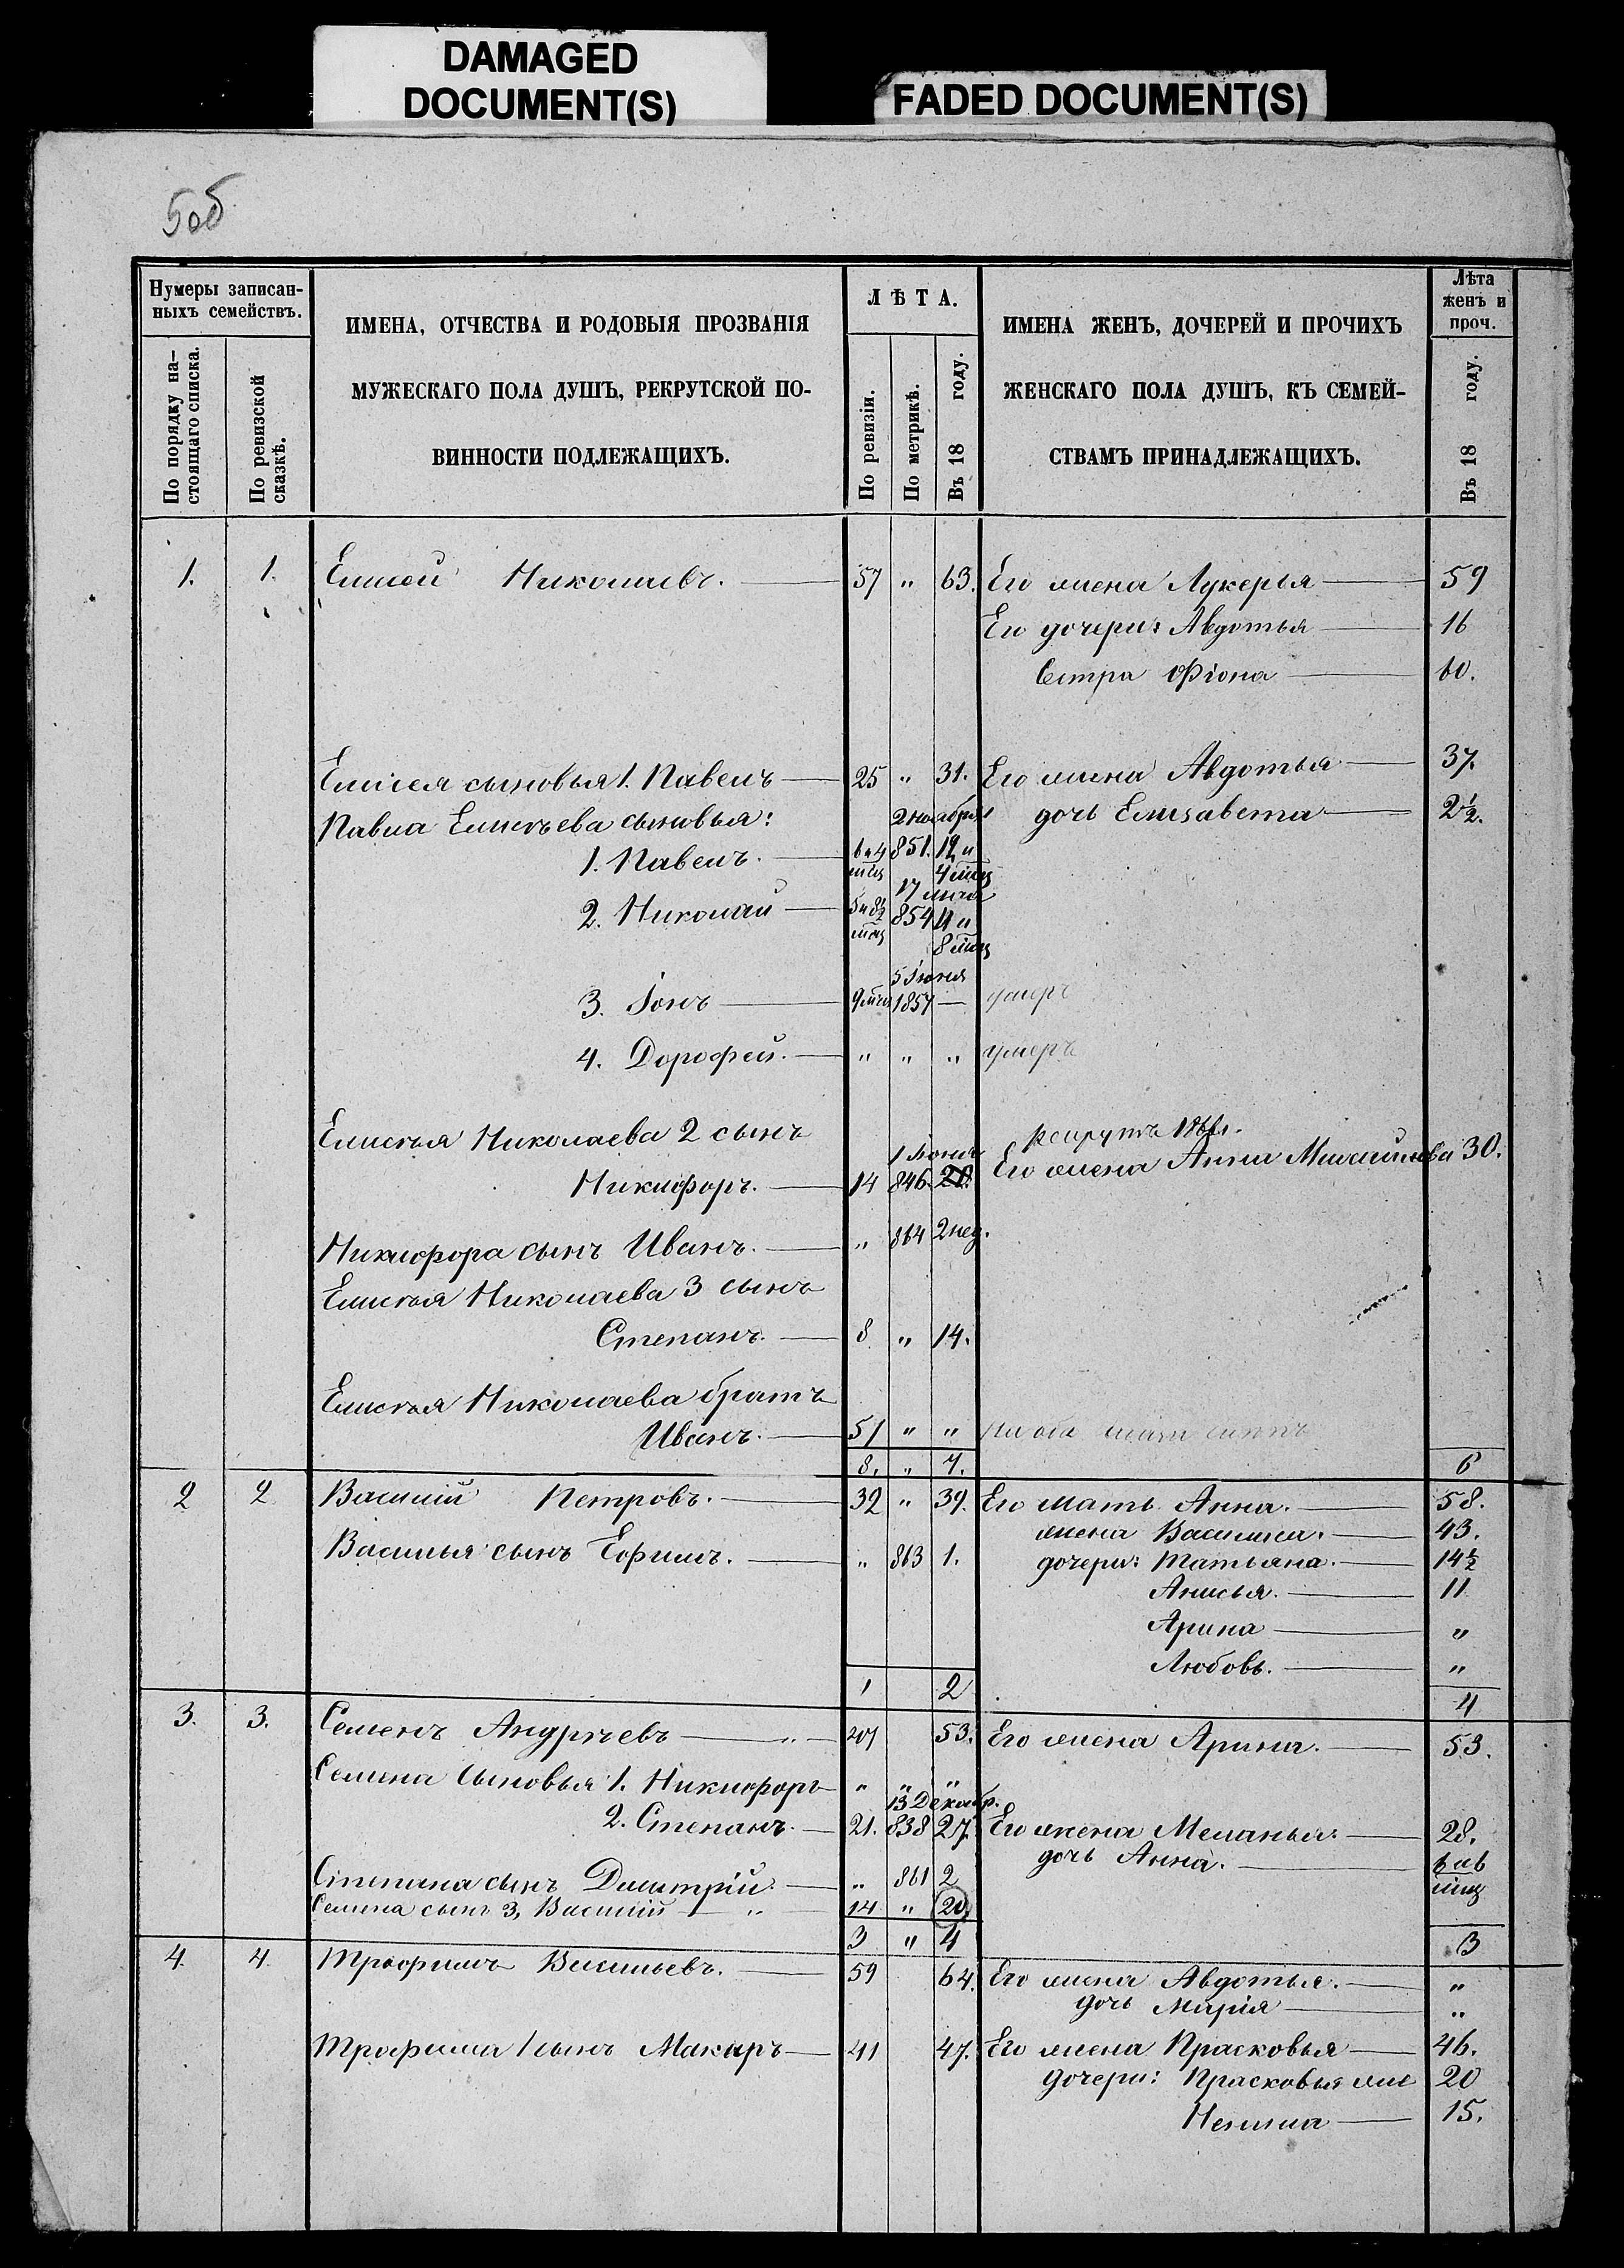 DAMAGED
DOCUMENT(S)
FADED DOCUMENT(S)
5об
Нумеры записан-
ныхъ семействъ.
По порядку на-
стоящаго списка.
По ревизской
сказкѣ.
ИМЕНА, ОТЧЕСТВА И РОДОВЫЯ ПРОЗВАНІЯ
МУЖЕСКАГО ПОЛА ДУШЪ, РЕКРУТСКОЙ ПО-
ВИННОСТИ ПОДЛЕЖАЩИХЪ.
ЛѢТА.
По ревизіи.
По метрикѣ.
Въ 18 году.
ИМЕНА ЖЕНЪ, ДОЧЕРЕЙ И ПРОЧИХЪ
ЖЕНСКАГО ПОЛА ДУШЪ, КЪ СЕМЕЙ-
СТВАМЪ ПРИНАДЛЕЖАЩИХЪ.
Лѣта
женъ и
проч.
Въ 18 году.
1. 1. Елисей Николаевъ. 57 " 63. Его жена Лукерья 59
Его дочери: Авдотья 16
Сестра Фіона 60.
Елисея сыновья 1. Павелъ 25 " 31. Его жена Авдотья 37.
Павла Елисѣева сыновья: 2 ноября дочь Елизавета 2½.
1. Павелъ. 6 и 4 мѣц 851. 12 и 4 мѣц
2. Николай 17 854 8 мѣц
3. Іонъ 9 мѣц 5 Іюня 1857 — умеръ
4. Дорофей. " " " умеръ
Елисѣя Николаева 2 сынъ рекрутъ
Никифоръ. 14 1 846. Его жена Анна 30.
Никифора сынъ Иванъ. " 864 2 нед.
Елисѣя Николаева 3 сынъ
Степанъ. 8 " 14.
Елисѣя Николаева братъ
Иванъ. 51 " "
8. " 7. 6
2 2 Василій Петровъ. 32 " 39. Его мать Анна. 58.
жена Василиса. 43.
Василья сынъ Ефимъ. " 863 1. дочери: Татьяна. 14½
Анисья. 11
Арина "
Любовь. "
1 2 4
3. 3. Семенъ Андрѣевъ " 47 53. Его жена Арина. 53.
Семена сыновья 1. Никифоръ " " "
13 Декабр.
2. Степанъ. 21. 838 27. Его жена Меланья. 28.
дочь Анна. 6 мѣц
Степана сынъ Дмитрій. " 861 2
Семена сынъ 3, Василій " 14 " 20
3 " 4 3
4. 4. Трофимъ Васильевъ. 59 64. Его жена Авдотья. "
дочь Марія "
Трофима 1 сынъ Макаръ 41 47. Его жена Прасковья 46.
Дочери: Прасковья 20
15.